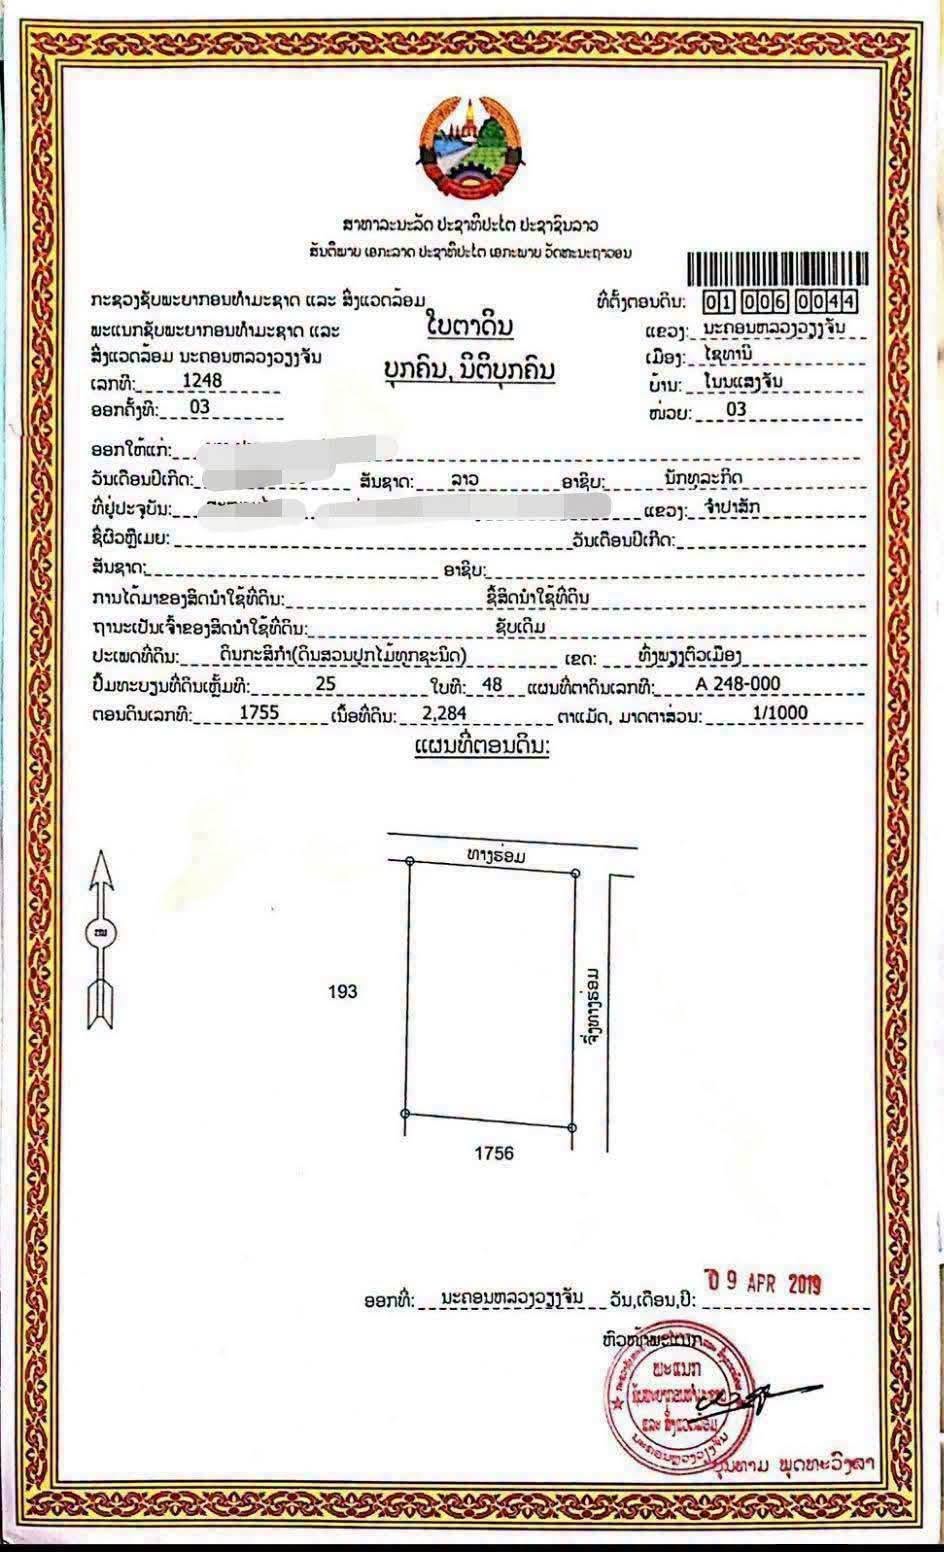 ສາທາລະນະລັດ ປະຊາທິປະໄຕ ປະຊາຊົນລາວ
ສັນຕິພາບ ເອກະລາດ ປະຊາທິປະໄຕ ເອກະພາບ ວັດທະນະຖາວອນ
ກະຊວງຊັບພະຍາກອນທຳມະຊາດ ແລະ ສິ່ງແວດລ້ອມ
ທີ່ຕັ້ງຕອນດິນ: 01 006 0044
ພະແນກຊັບພະຍາກອນທຳມະຊາດ ແລະ
ໃບຕາດິນ
ແຂວງ: ນະຄອນຫລວງວຽງຈັນ
ສິ່ງແວດລ້ອມ ນະຄອນຫລວງວຽງຈັນ
ບຸກຄົນ, ນິຕິບຸກຄົນ
ເມືອງ: ໄຊທານີ
ເລກທີ: 1248
ບ້ານ: ໂນນແສງຈັນ
ອອກຄັ້ງທີ: 03
ໜ່ວຍ: 03
ອອກໃຫ້ແກ່:
ວັນເດືອນປີເກີດ: ສັນຊາດ: ລາວ ອາຊີບ: ນັກທຸລະກິດ
ທີ່ຢູ່ປະຈຸບັນ: ແຂວງ: ຈຳປາສັກ
ຊື່ຜົວຫຼືເມຍ: ວັນເດືອນປີເກີດ:
ສັນຊາດ: ອາຊີບ:
ການໄດ້ມາຂອງສິດນຳໃຊ້ທີ່ດິນ: ຊື້ສິດນຳໃຊ້ທີ່ດິນ
ຖານະເປັນເຈົ້າຂອງສິດນຳໃຊ້ທີ່ດິນ: ຊັບເດີມ
ປະເພດທີ່ດິນ: ດິນກະສິກຳ(ດິນສວນປູກໄມ້ທຸກຊະນິດ) ເຂດ: ທົ່ງພຽງຕົວເມືອງ
ປຶ້ມທະບຽນທີ່ດິນເຫຼັ້ມທີ: 25 ໃບທີ: 48 ແຜນທີ່ຕາດິນເລກທີ: A 248-000
ຕອນດິນເລກທີ: 1755 ເນື້ອທີ່ດິນ: 2,284 ຕາແມັດ, ມາດຕາສ່ວນ: 1/1000
ແຜນທີ່ຕອນດິນ:
ທາງຮ່ອມ
193
ຈຶ່ງທາງຮ່ອມ
1756
09 APR 2019
ອອກທີ່: ນະຄອນຫລວງວຽງຈັນ ວັນ,ເດືອນ,ປີ:
ຫົວໜ້າພະແນກ
ພະແນກ
ຊັບພະຍາກອນທຳມະຊາດ
ແລະ ສິ່ງແວດລ້ອມ
ນະຄອນຫລວງວຽງຈັນ
ບຸນທາມ ພຸດທະວົງສາ